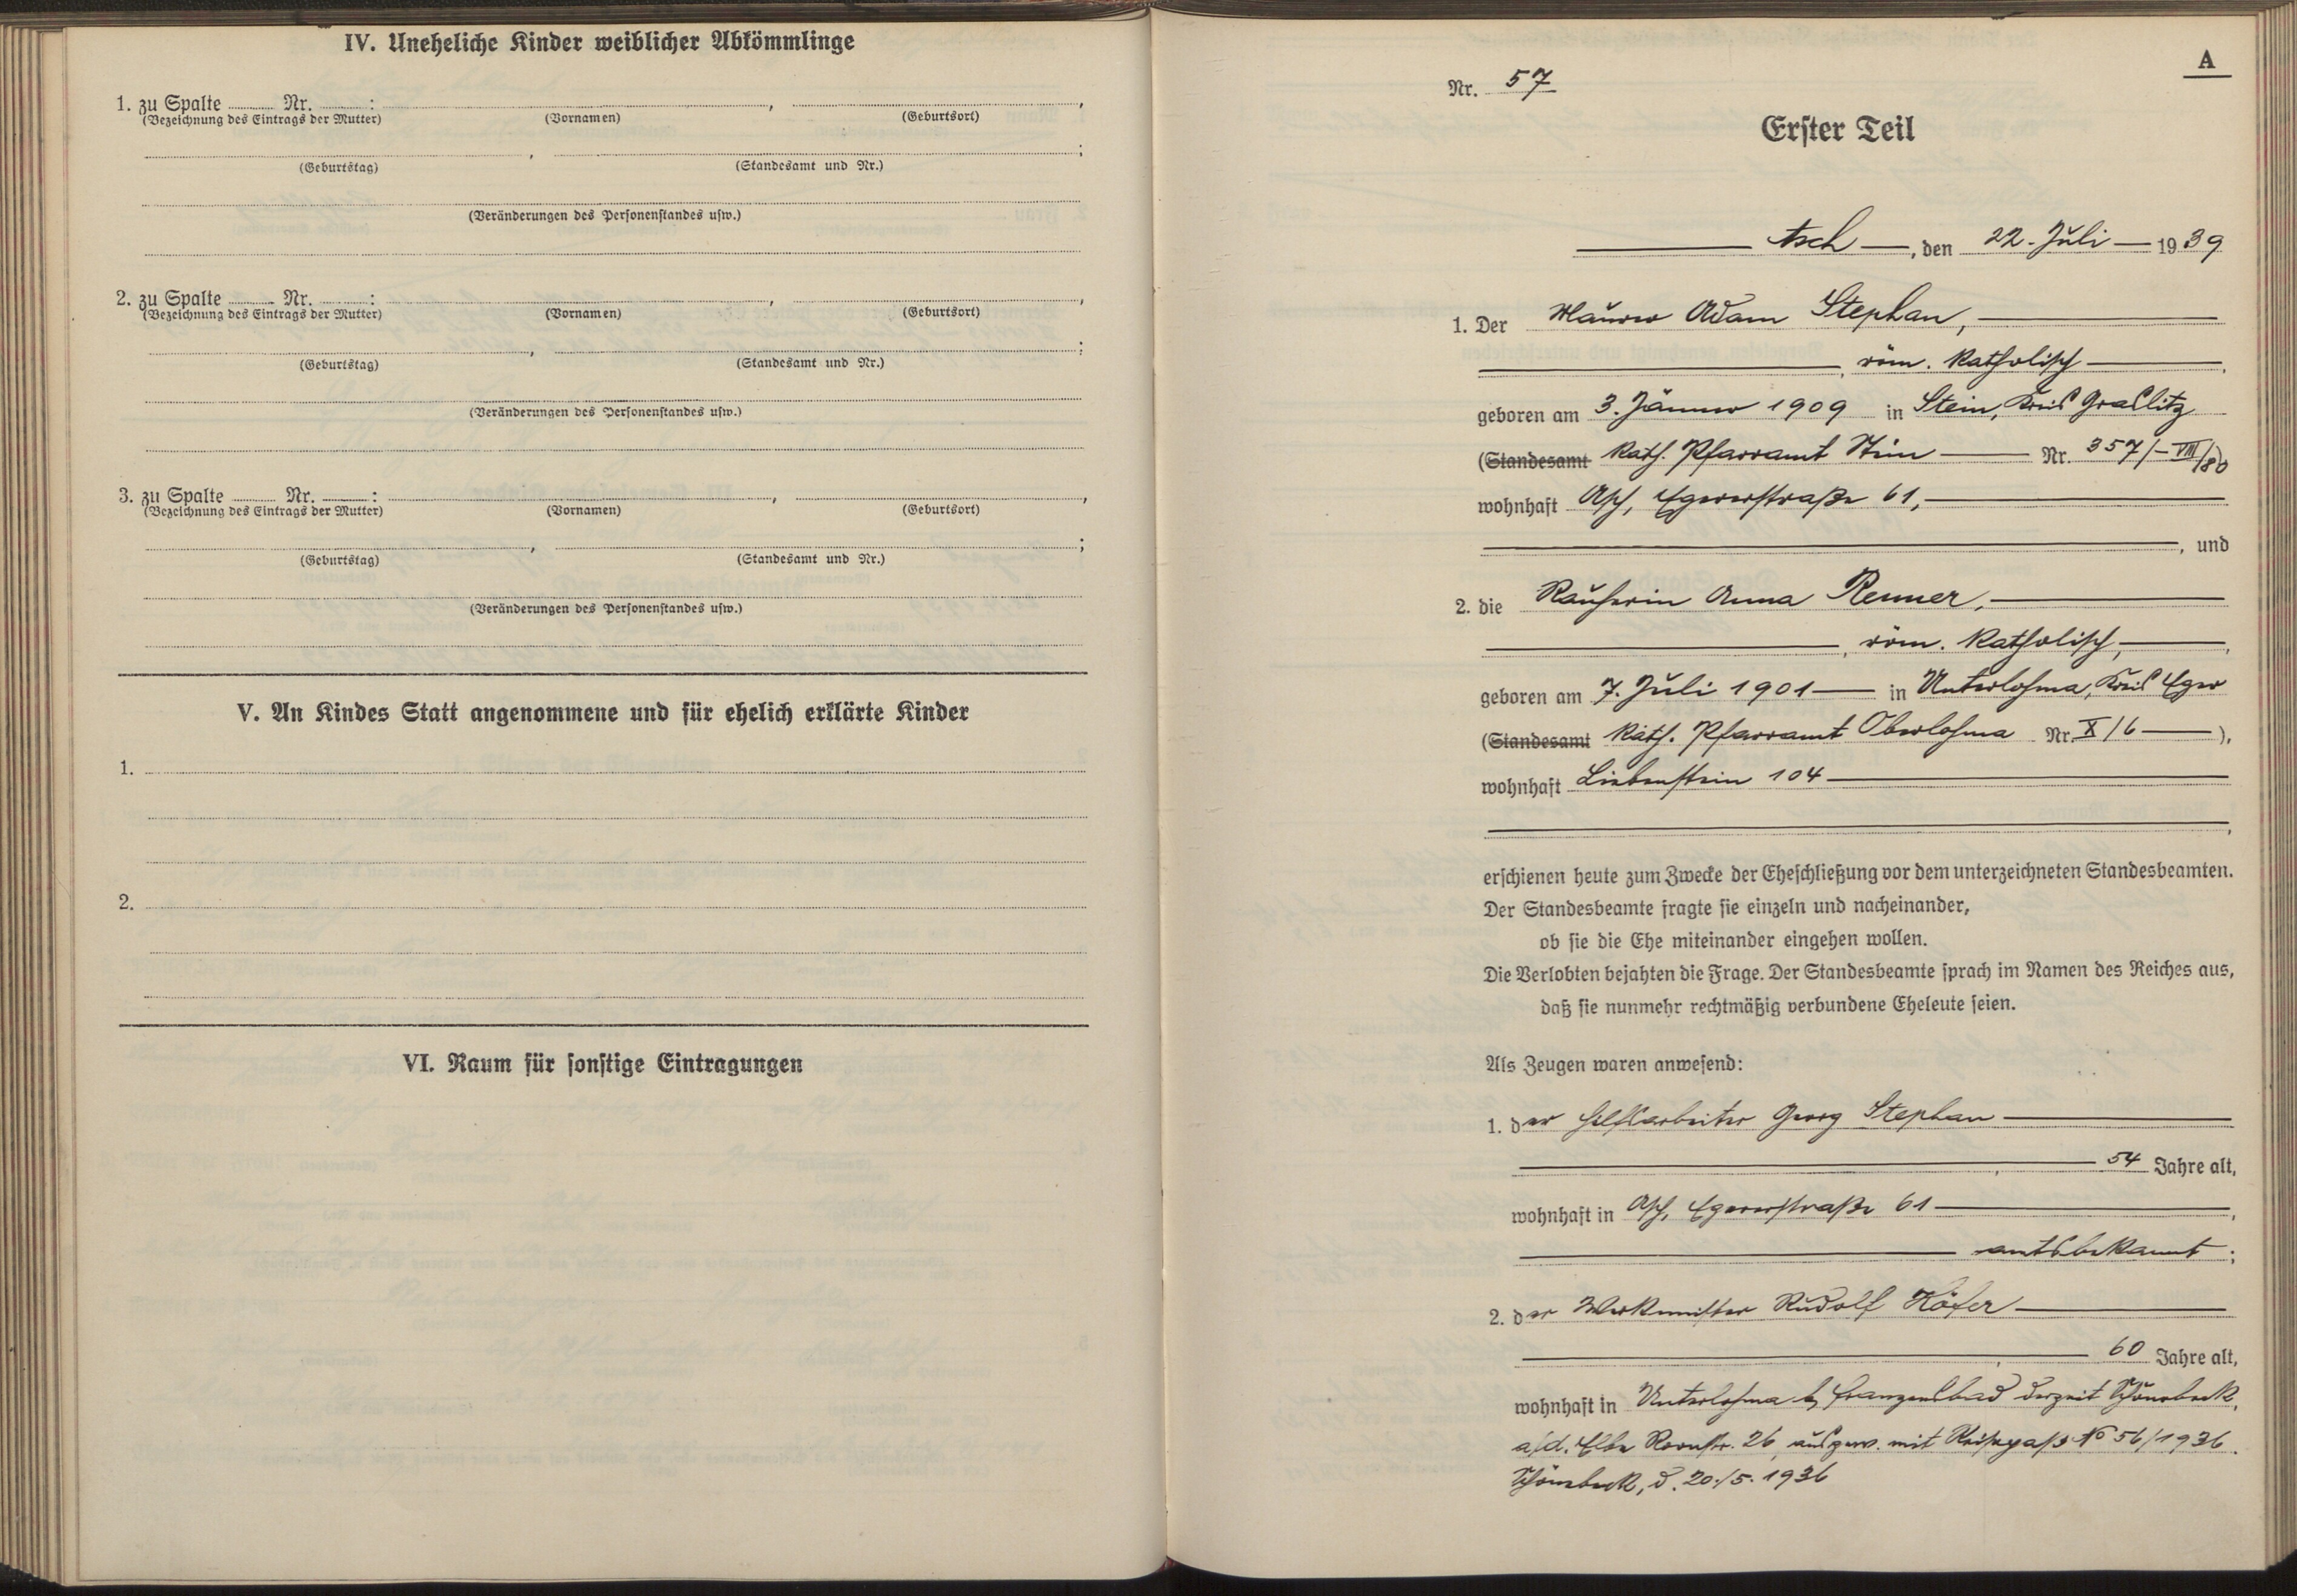 IV. Uneheliche Kinder weiblicher Abkömmlinge
1. zu Spalte Nr. : , ,
(Bezeichnung des Eintrags der Mutter) (Vornamen) (Geburtsort)
, ;
(Geburtstag) (Standesamt und Nr.)
(Veränderungen des Personenstandes usw.)
2. zu Spalte Nr. : , ,
(Bezeichnung des Eintrags der Mutter) (Vornamen) (Geburtsort)
, ;
(Geburtstag) (Standesamt und Nr.)
(Veränderungen des Personenstandes usw.)
3. zu Spalte Nr. : , ,
(Bezeichnung des Eintrags der Mutter) (Vornamen) (Geburtsort)
, ;
(Geburtstag) (Standesamt und Nr.)
(Veränderungen des Personenstandes usw.)
V. An Kindes Statt angenommene und für ehelich erklärte Kinder
1.
2.
VI. Raum für sonstige Eintragungen
A
Nr. 57
Erster Teil
Asch, den 22. Juli 1939
1. Der Maurer Adam Stephan,
, röm. katholisch,
geboren am 3. Jänner 1909 in Stein, Kreis Graslitz
(Standesamt kath. Pfarramt Stein Nr. 357/-VIII/80
wohnhaft Asch, Egererstraße 61,
, und
2. die Rauherin Anna Renner,
, röm. katholisch,
geboren am 7. Juli 1901 in Unterlohma, Kreis Eger
(Standesamt kath. Pfarramt Oberlohma Nr X/6 ),
wohnhaft Liebenstein 104
,
erschienen heute zum Zwecke der Eheschließung vor dem unterzeichneten Standesbeamten.
Der Standesbeamte fragte sie einzeln und nacheinander,
ob sie die Ehe miteinander eingehen wollen.
Die Verlobten bejahten die Frage. Der Standesbeamte sprach im Namen des Reiches aus,
daß sie nunmehr rechtmäßig verbundene Eheleute seien.
Als Zeugen waren anwesend:
1. der Hilfsarbeiter Georg Stephan
, 54 Jahre alt,
wohnhaft in Asch, Egererstraße 61 ,
amtsbekannt ;
2. der Werkmeister Rudolf Höfer
, 60 Jahre alt,
wohnhaft in Unterlohma b, Franzensbad derzeit Schönebeck,
a/d. Elbe Roonstr. 26, ausgew. mit Reisepass No 56/1936.
Schönebeck, d. 20./5. 1936